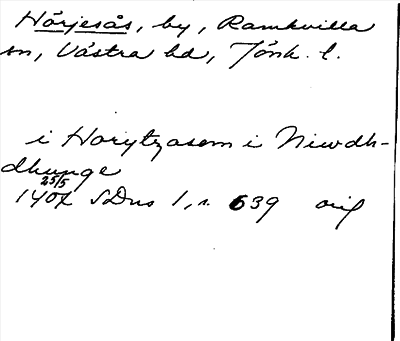 Härjesås, by, Ramkvilla
sn, Västra hd, Jönk. l.
i Horytzasem i Niwdh-
dhunge
25/5
1407 SDns 1, s. 639 orig